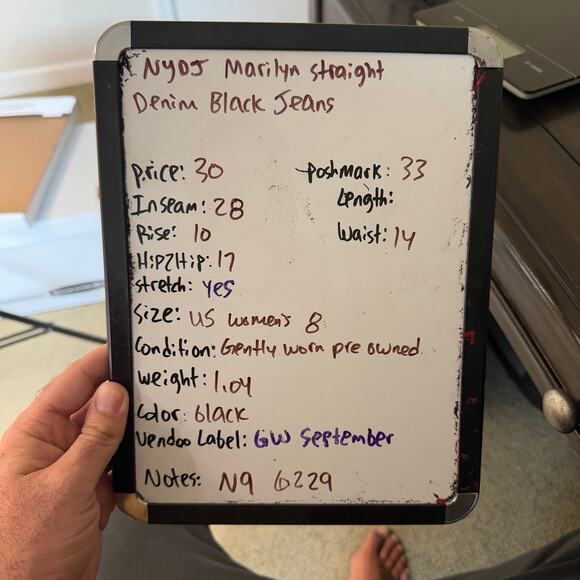 NYDJ Marilyn straight
Denim Black Jeans
price: 30
poshmark: 33
Inseam: 28
Length:
Rise: 10
Waist: 14
Hip2Hip: 17
stretch: yes
Size: US women's 8
Condition: Gently worn pre owned
weight: 1.04
Color: black
Vendoo Label: GW September
Notes: N9 6229